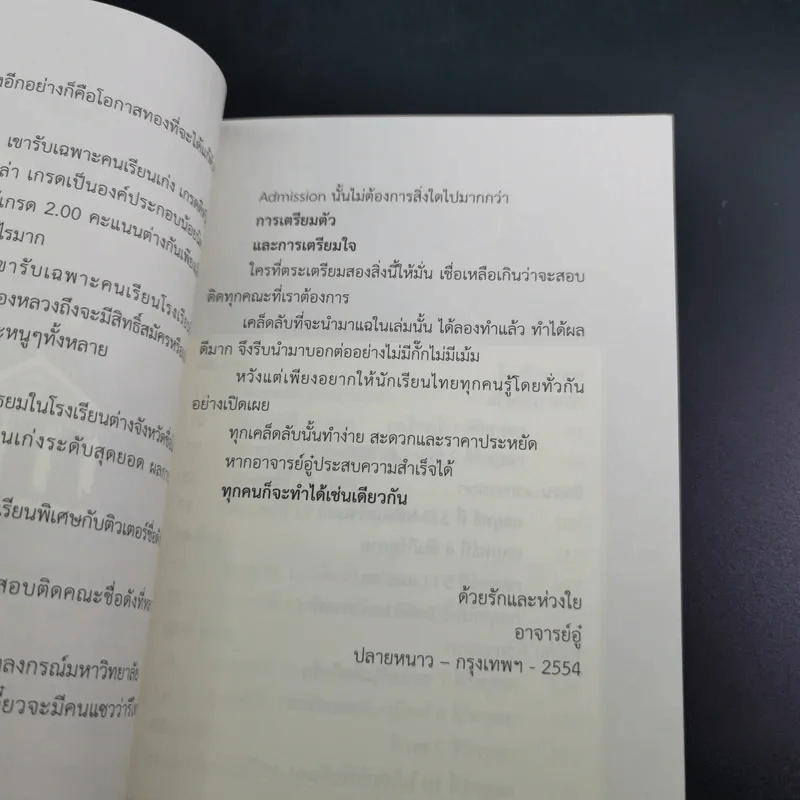 งอีกอย่างก็คือโอกาสทองที่จะได้
เขารับเฉพาะคนเรียนเก่ง
ล่า เกรดเป็นองค์ประกอบน้อย
เกรด 2.00 คะแนนต่างกันเพียง
ไรมาก
ขารับเฉพาะคนเรียนโรงเรียน
องหลวงถึงจะมีสิทธิ์สมัครหรือ
ะหนูๆทั้งหลาย
ธยมในโรงเรียนต่างจังหวัด
นเก่งระดับสุดยอด
รียนพิเศษกับติวเตอร์ชื่อ
สอบติดคณะชื่อดังที่
ลงกรณ์มหาวิทยาลัย
ี๋ยวจะมีคนแซวว่า
Admission นั้นไม่ต้องการสิ่งใดไปมากกว่า
การเตรียมตัว
และการเตรียมใจ
ใครที่ตระเตรียมสองสิ่งนี้ให้มั่น เชื่อเหลือเกินว่าจะสอบ
ติดทุกคณะที่เราต้องการ
เคล็ดลับที่จะนำมาแฉในเล่มนั้น ได้ลองทำแล้ว ทำได้ผล
ดีมาก จึงรีบนำมาบอกต่ออย่างไม่มีกั๊กไม่มีเม้ม
หวังแต่เพียงอยากให้นักเรียนไทยทุกคนรู้โดยทั่วกัน
อย่างเปิดเผย
ทุกเคล็ดลับนั้นทำง่าย สะดวกและราคาประหยัด
หากอาจารย์อู๋ประสบความสำเร็จได้
ทุกคนก็จะทำได้เช่นเดียวกัน
ด้วยรักและห่วงใย
อาจารย์อู๋
ปลายหนาว – กรุงเทพฯ - 2554